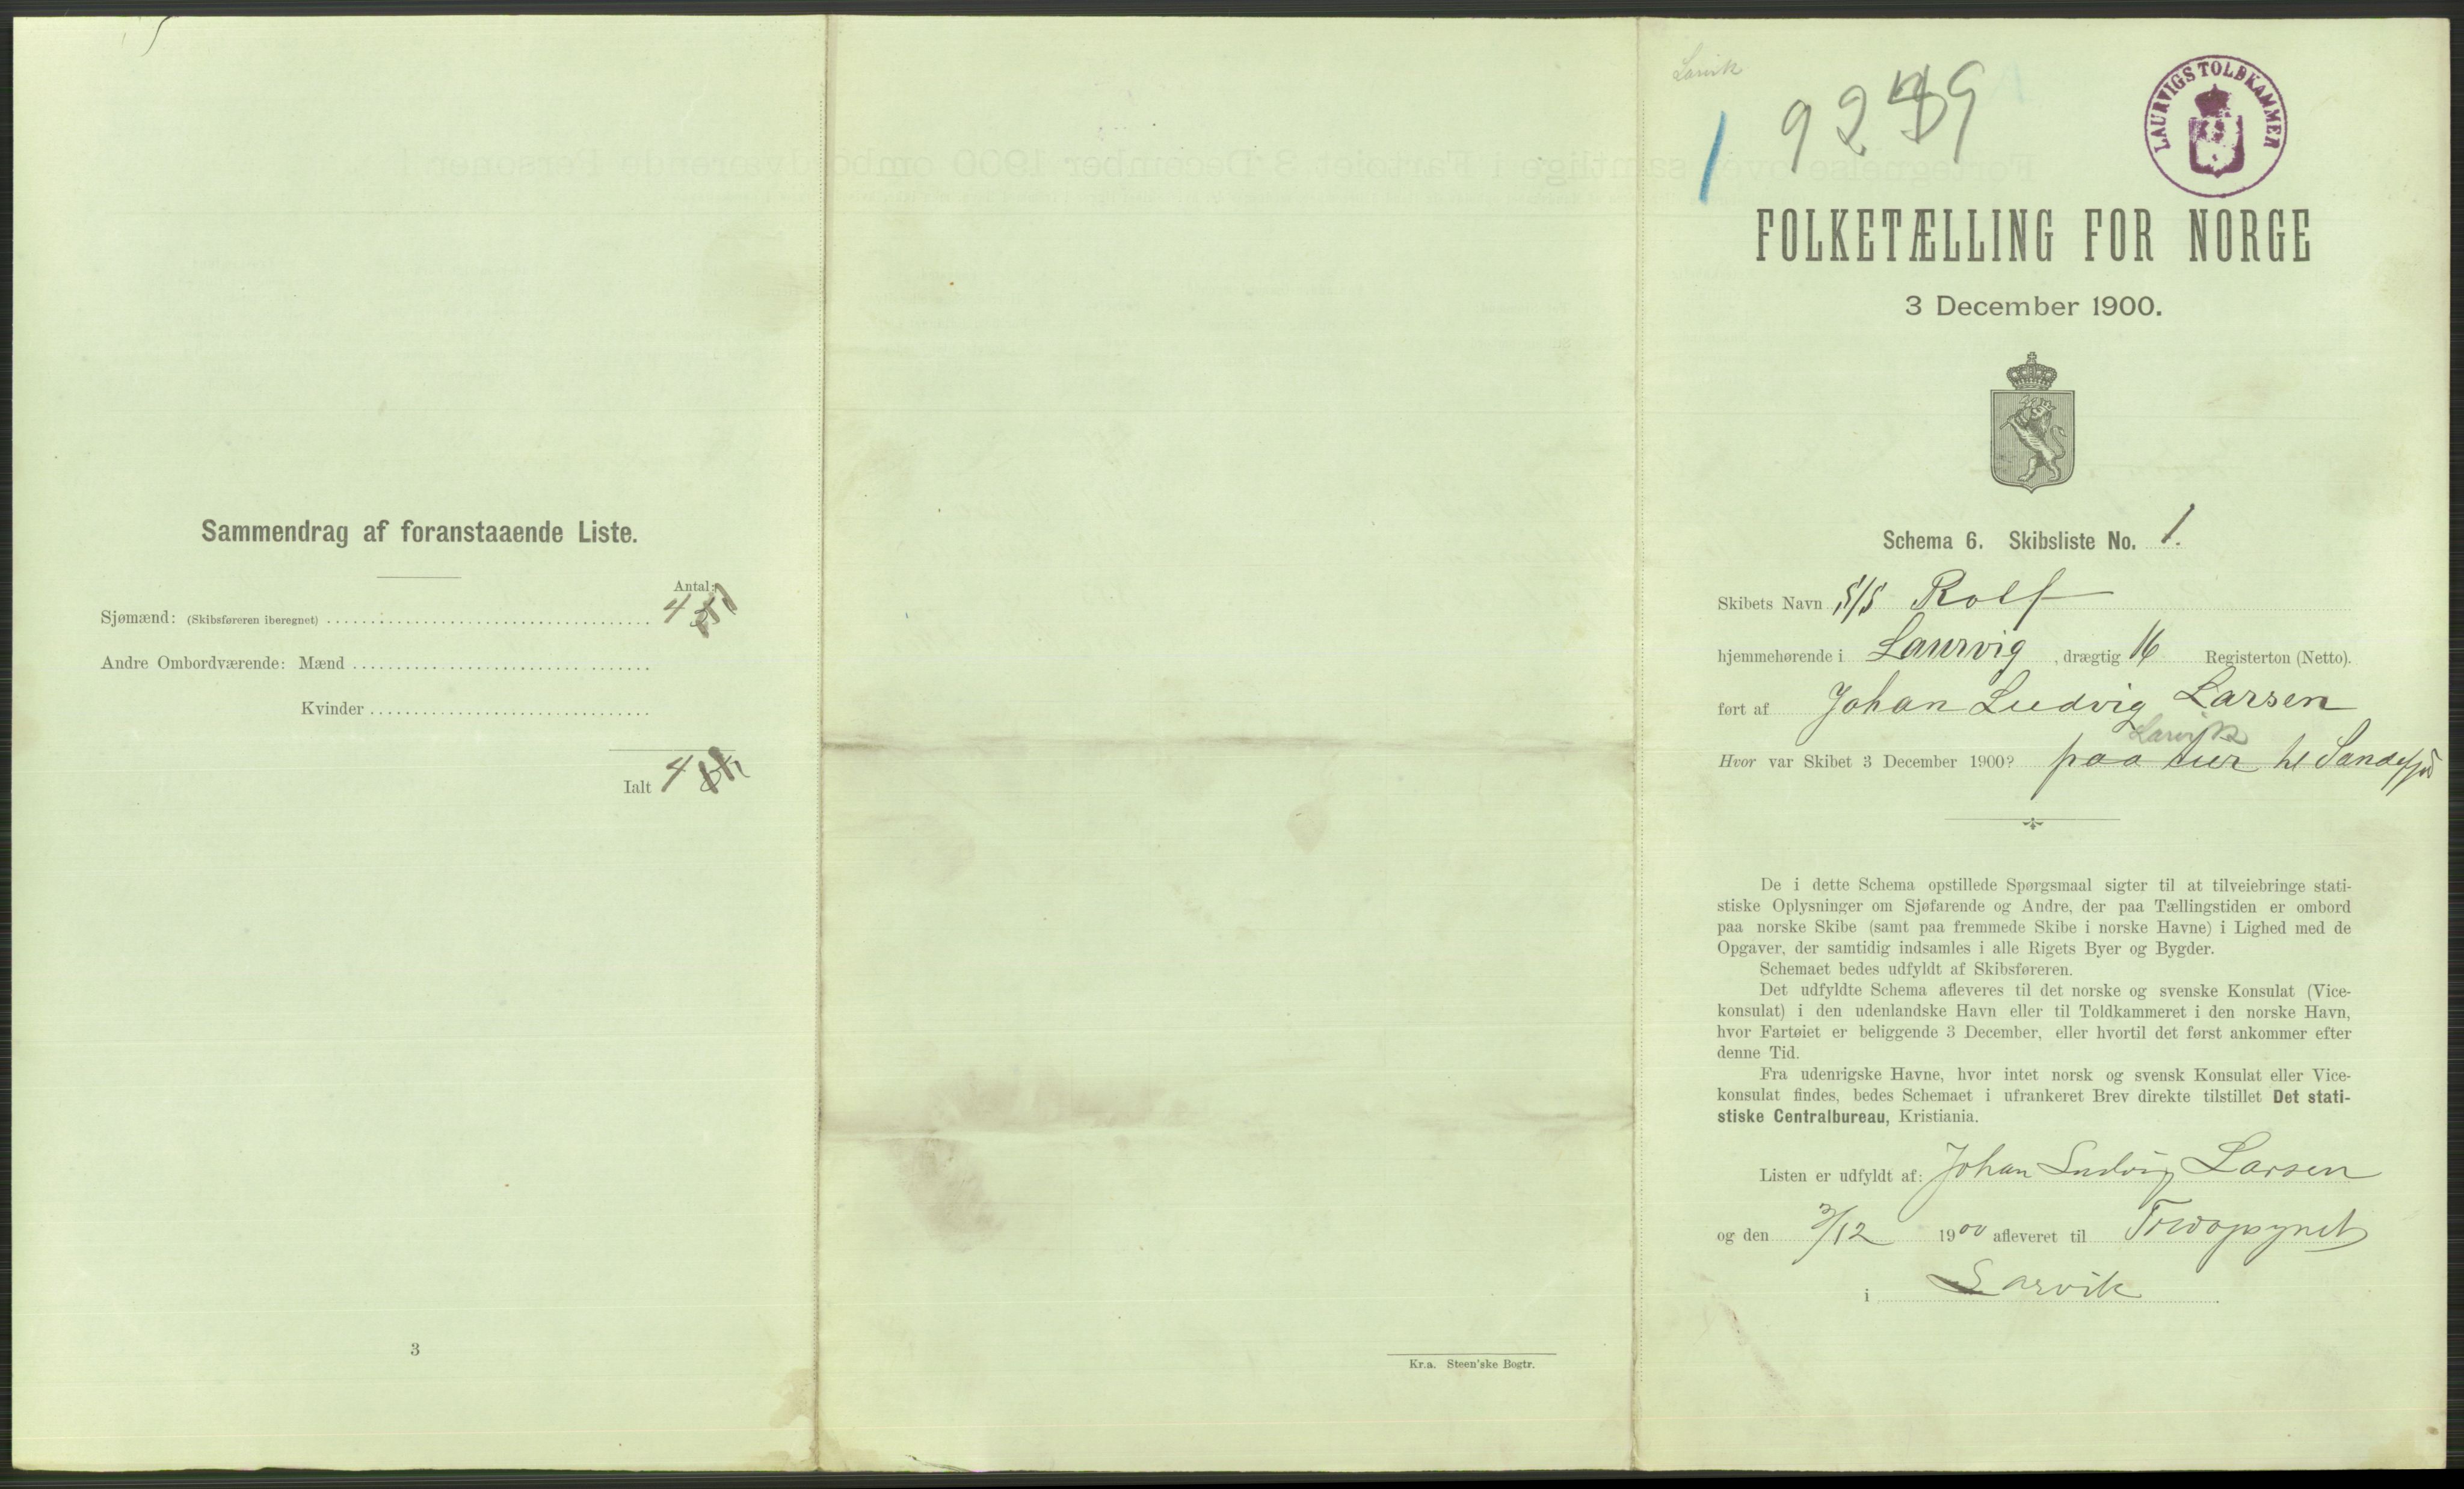 Sammendrag af foranstaaende Liste.
Antal:
Sjømænd: (Skibsføreren iberegnet) 4
Andre Ombordværende: Mænd
Kvinder
Ialt 4
3
Kr.a. Steen'ske Bogtr.
Larvik
1
LAURVIGS TOLDKAMMER
FOLKETÆLLING FOR NORGE
3 December 1900.
Schema 6. Skibsliste No. 1.
Skibets Navn S/S Rolf
hjemmehørende i Laurvig, drægtig 16 Registerton (Netto).
ført af Johan Ludvig Larsen
Larvik
Hvor var Skibet 3 December 1900? paa tur til Sandefj
De i dette Schema opstillede Spørgsmaal sigter til at tilveiebringe stati-
stiske Oplysninger om Sjøfarende og Andre, der paa Tællingstiden er ombord
paa norske Skibe (samt paa fremmede Skibe i norske Havne) i Lighed med de
Opgaver, der samtidig indsamles i alle Rigets Byer og Bygder.
Schemaet bedes udfyldt af Skibsføreren.
Det udfyldte Schema afleveres til det norske og svenske Konsulat (Vice-
konsulat) i den udenlandske Havn eller til Toldkammeret i den norske Havn,
hvor Fartøiet er beliggende 3 December, eller hvortil det først ankommer efter
denne Tid.
Fra udenrigske Havne, hvor intet norsk og svensk Konsulat eller Vice-
konsulat findes, bedes Schemaet i ufrankeret Brev direkte tilstillet Det stati-
stiske Centralbureau, Kristiania.
Listen er udfyldt af: Johan Ludvig Larsen
og den 3/12 1900 afleveret til
i Larvik